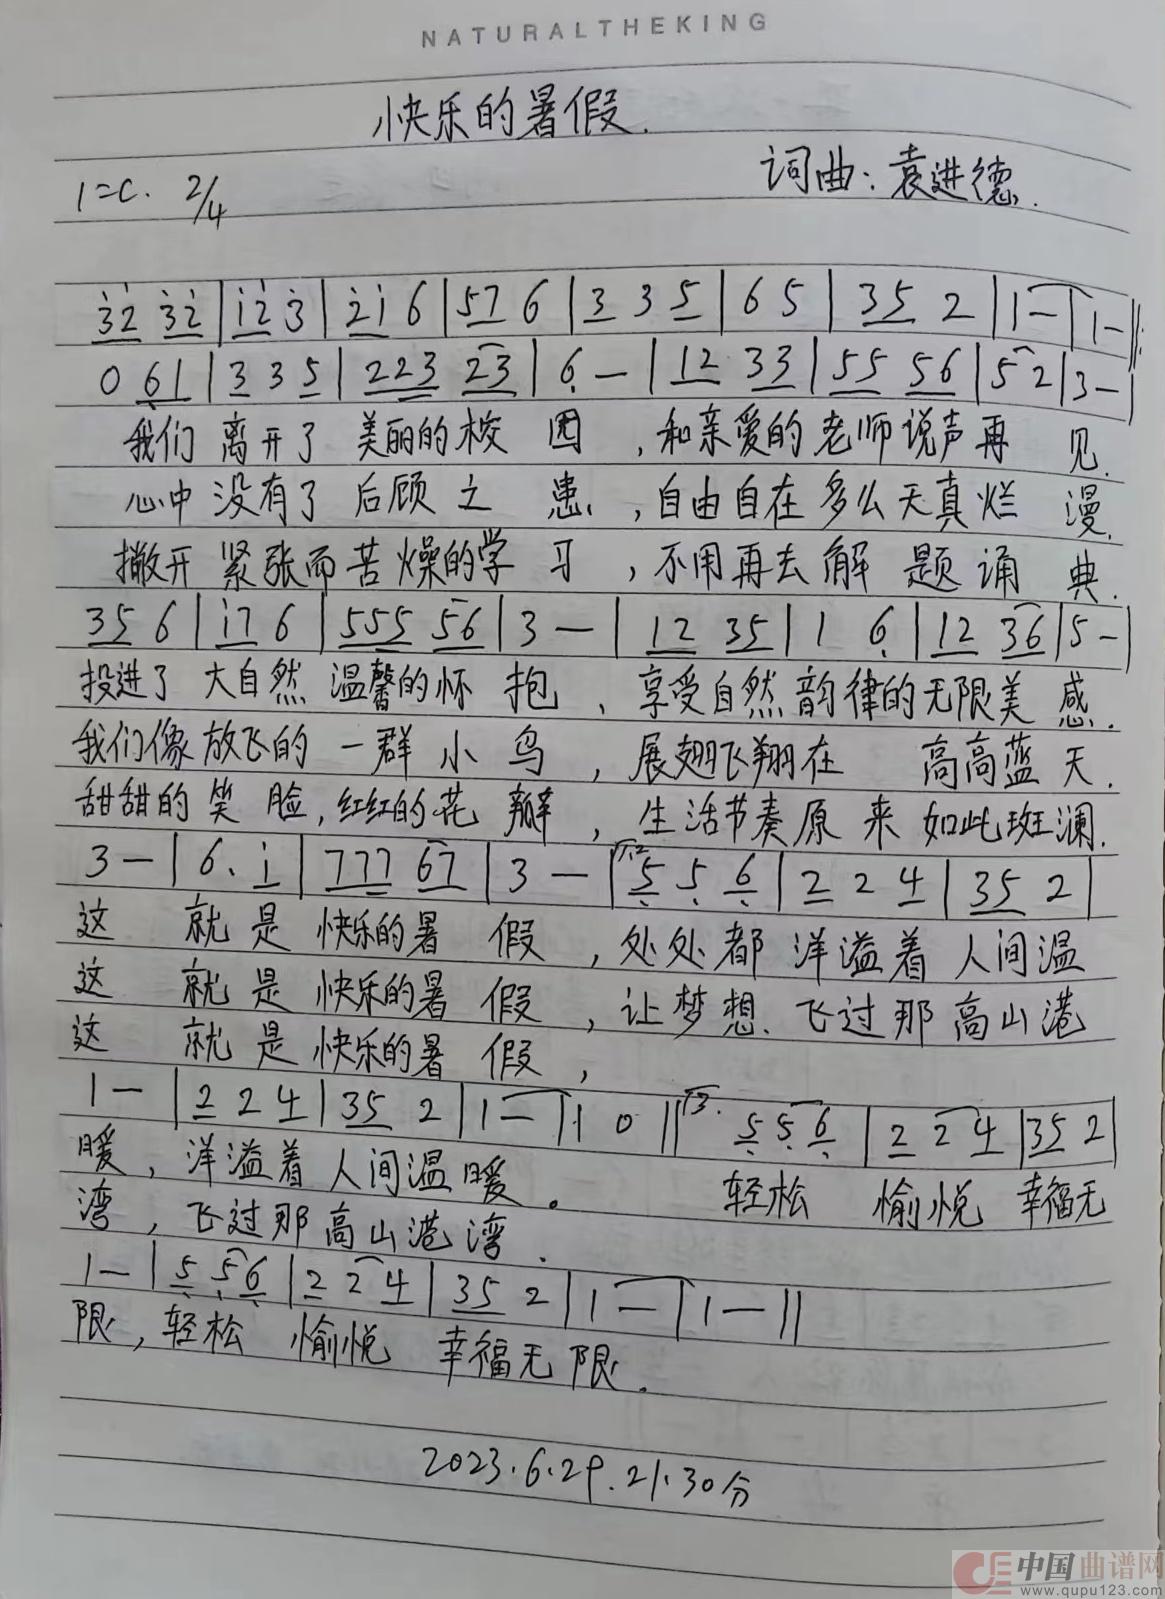 NATURALTHEKING
快乐的暑假.
1=C. 2/4
词曲：袁进德.
3̇2̇ 3̇2̇ | 1̇2̇ 3̇ | 2̇1̇ 6 | 57 6 | 3 3 5 | 6 5 | 35 2 | 1 — | 1 — ‖:
0 6̣1 | 3 3 5 | 223 23 | 6̣ — | 12 33 | 55 56 | 5 2 | 3 — |
我们 离开了 美丽的校 园 ，和亲爱的老师说声再 见.
心中 没有了 后顾之 患 ，自由自在多么天真烂 漫.
撇开 紧张而苦燥的学 习 ，不用再去解 题诵 典.
35 6 | 1̇7 6 | 555 56 | 3 — | 12 35 | 1 6̣ | 12 36 | 5 — |
投进了 大自然 温馨的怀 抱 、享受自然韵律的无限美 感.
我们像放飞的 一群小 鸟 ，展翅飞翔在 高高蓝 天.
甜甜的 笑 脸,红红的花 瓣 ，生活节奏原 来 如此斑斓.
3 — | 6. 1̇ | 777 67 | 3 — | 1.2 5̣ 5̣ 6̣ | 2 2 4 | 35 2 |
这 就是 快乐的暑 假 ，处处都 洋溢着 人间温
这 就是 快乐的暑 假 ，让梦想. 飞过那 高山港
这 就是 快乐的暑 假 ，
1 — | 2 2 4 | 35 2 | 1 — | 1 0 ‖ 3. 5̣ 5̣ 6̣ | 2 2 4 | 35 2 |
暖，洋溢着 人间温 暖。 轻松 愉悦 幸福无
湾，飞过那高山港 湾.
1 — | 5̣ 5̣ 6̣ | 2 2 4 | 35 2 | 1 — | 1 — ‖
限，轻松 愉悦 幸福无 限.
2023.6.29.21.30分
中国曲谱网
www.qupu123.com